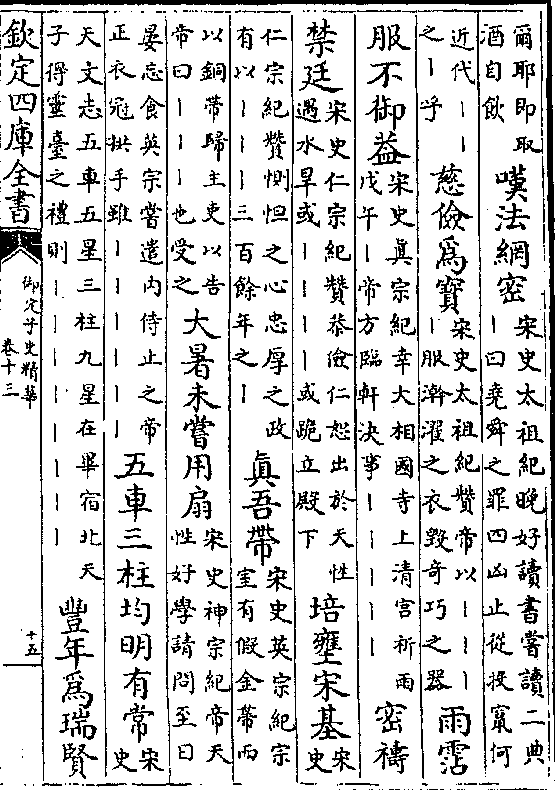 爾耶即取
酒自飲
嘆法網密
宋史太祖紀晚好讀書嘗讀二典
｜曰堯舜之罪四凶止從投竄何
近代｜｜
之｜乎
慈儉爲寶
宋史太祖紀贊帝以｜｜｜
｜服澣濯之衣毀奇巧之器
雨霑
服不御蓋
宋史眞宗紀幸大相國寺上清宮祈雨
戊午｜帝方臨軒決事｜｜｜｜
密禱
禁廷
宋史仁宗紀贊恭儉仁恕出於天性
遇水旱或｜｜｜｜或跪立殿下
培壅宋基
宋
史
仁宗紀贊惻怛之心忠厚之政
有以｜｜｜三百餘年之｜
眞吾帶
宋史英宗紀宗
室有假金帶而
以銅帶歸主吏以告
帝曰｜｜｜也受之
大暑未嘗用扇
宋史神宗紀帝天
性好學請問至日
晏忘食英宗嘗遣内侍止之帝
正衣冠拱手雖｜｜｜｜｜｜
五車三柱均明有常
宋
史
天文志五車五星三柱九星在畢宿北天
子得靈臺之禮則｜｜｜｜｜｜｜｜
豐年爲瑞賢
欽定四庫全書
御定子史精華
卷十三
十五